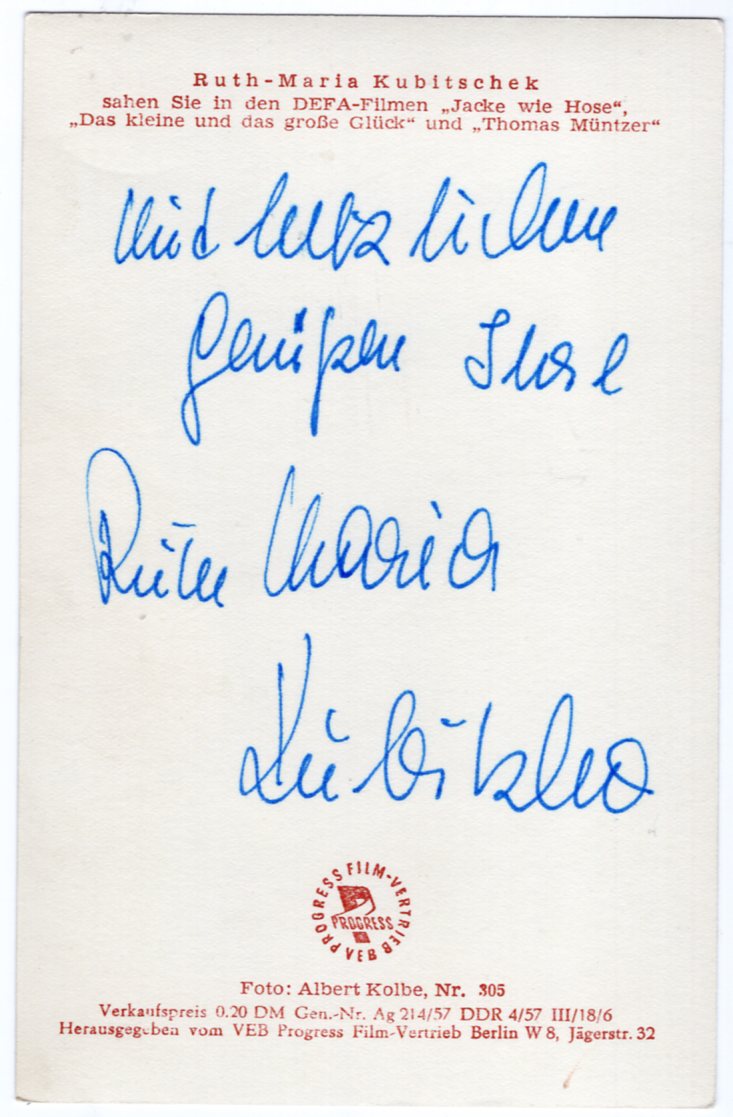 Ruth-Maria Kubitschek
sahen Sie in den DEFA-Filmen „Jacke wie Hose“,
„Das kleine und das große Glück“ und „Thomas Müntzer“
Mit herzlichen
Grüßen Ihre
Ruth Maria
Kubitschek
PROGRESS FILM-VERTRIEB VEB
PROGRESS
Foto: Albert Kolbe, Nr. 305
Verkaufspreis 0.20 DM Gen.-Nr. Ag 214/57 DDR 4/57 III/18/6
Herausgegeben vom VEB Progress Film-Vertrieb Berlin W 8, Jägerstr. 32